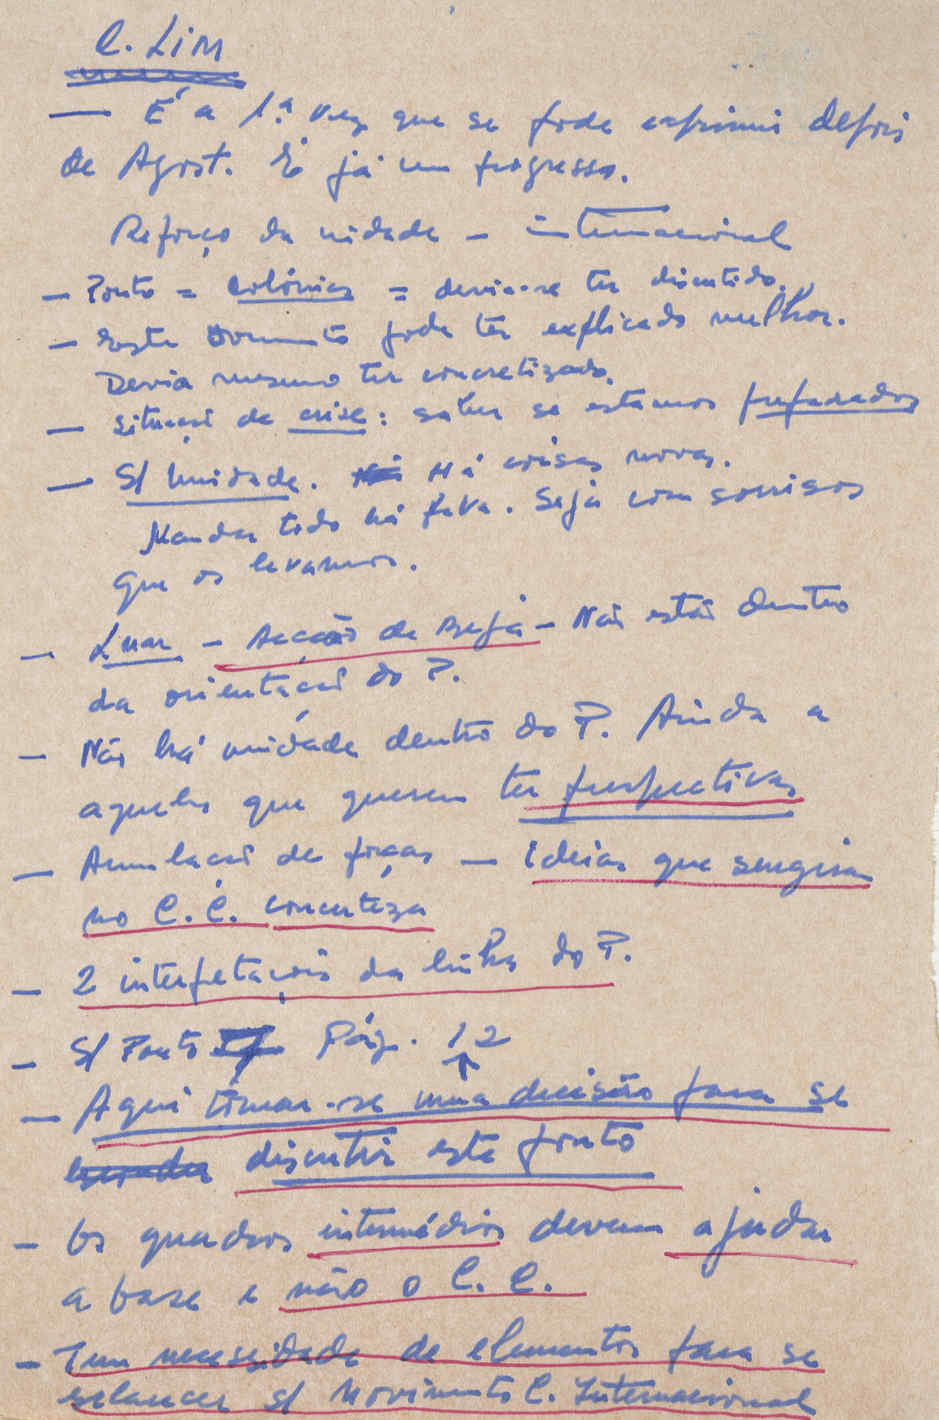 C. Lim
— É a 1.ª vez que se pode exprimir depois
de Agost. E já um progresso.
Reforço da unidade – internacional
– Ponto = Colónias = devia-se ter discutido.
– Este Documento pode ter explicado melhor.
Devia mesmo ter concretizado.
– Situação de crise: saber se estamos preparados
– S/ Unidade. Há crises novas.
Mandar todo há fava. Seja com sorrisos
que os levamos.
– Luar – Acção de Beja – Não está dentro
da orientação do P.
– Não há unidade dentro do P. Ainda a
aqueles que querem ter perspectivas
– Acumulação de forças – ideias que surgiram
no C.C. concerteza
– 2 interpetações da linha do P.
– S/ Ponto Pág. 12
– Aqui tomar-se uma decisão para se
discutir este ponto
– Os quadros intermédios devem ajudar
a base e não o C.C.
– Tem necessidade de elementos para se
esclarecer s/ Movimento C. Internacional